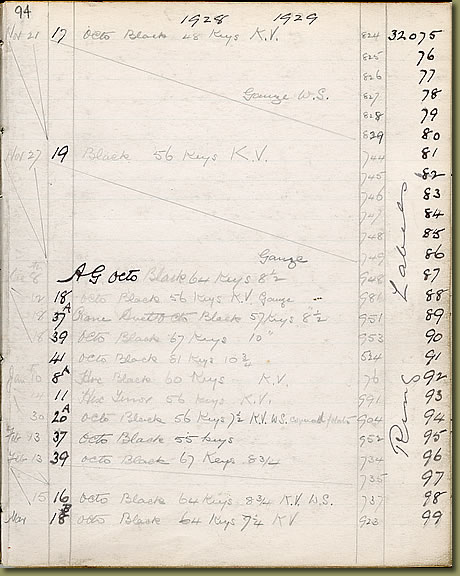 94 1928 1929
Nov 21 17 Octo Black 48 Keys K.V. 824 32075
825 76
826 77
Gauze W.S. 827 78
828 79
829 80
Nov 27 19 Black 56 Keys K.V. 744 81
745 82
746 83
747 84
748 85
Gauze 749 86
8 AG Octo Black 64 Keys 8½ 948 87
12 18 Octo Black 56 Keys K.V. Gauze 986 88
18 37A Duett Octo Black 57 Keys 8½ 951 89
18 39 Octo Black 67 Keys 10" 953 90
41 Octo Black 81 Keys 10¾ 534 91
Jan 10 8A Hex Black 60 Keys K.V. 76 92
11 Hex Tenor 56 Keys K.V. 591 93
30 20A Octo Black 56 Keys 7½ K.V. W.S. 904 94
Feb 13 37 Octo Black 55 Keys 952 95
Feb 13 39 Octo Black 67 Keys 8¾ 734 96
735 97
15 16 Octo Black 64 Keys 8¾ K.V. W.S. 737 98
Mar 18 Octo Black 64 Keys 7½ K.V 923 99
Rims Labels